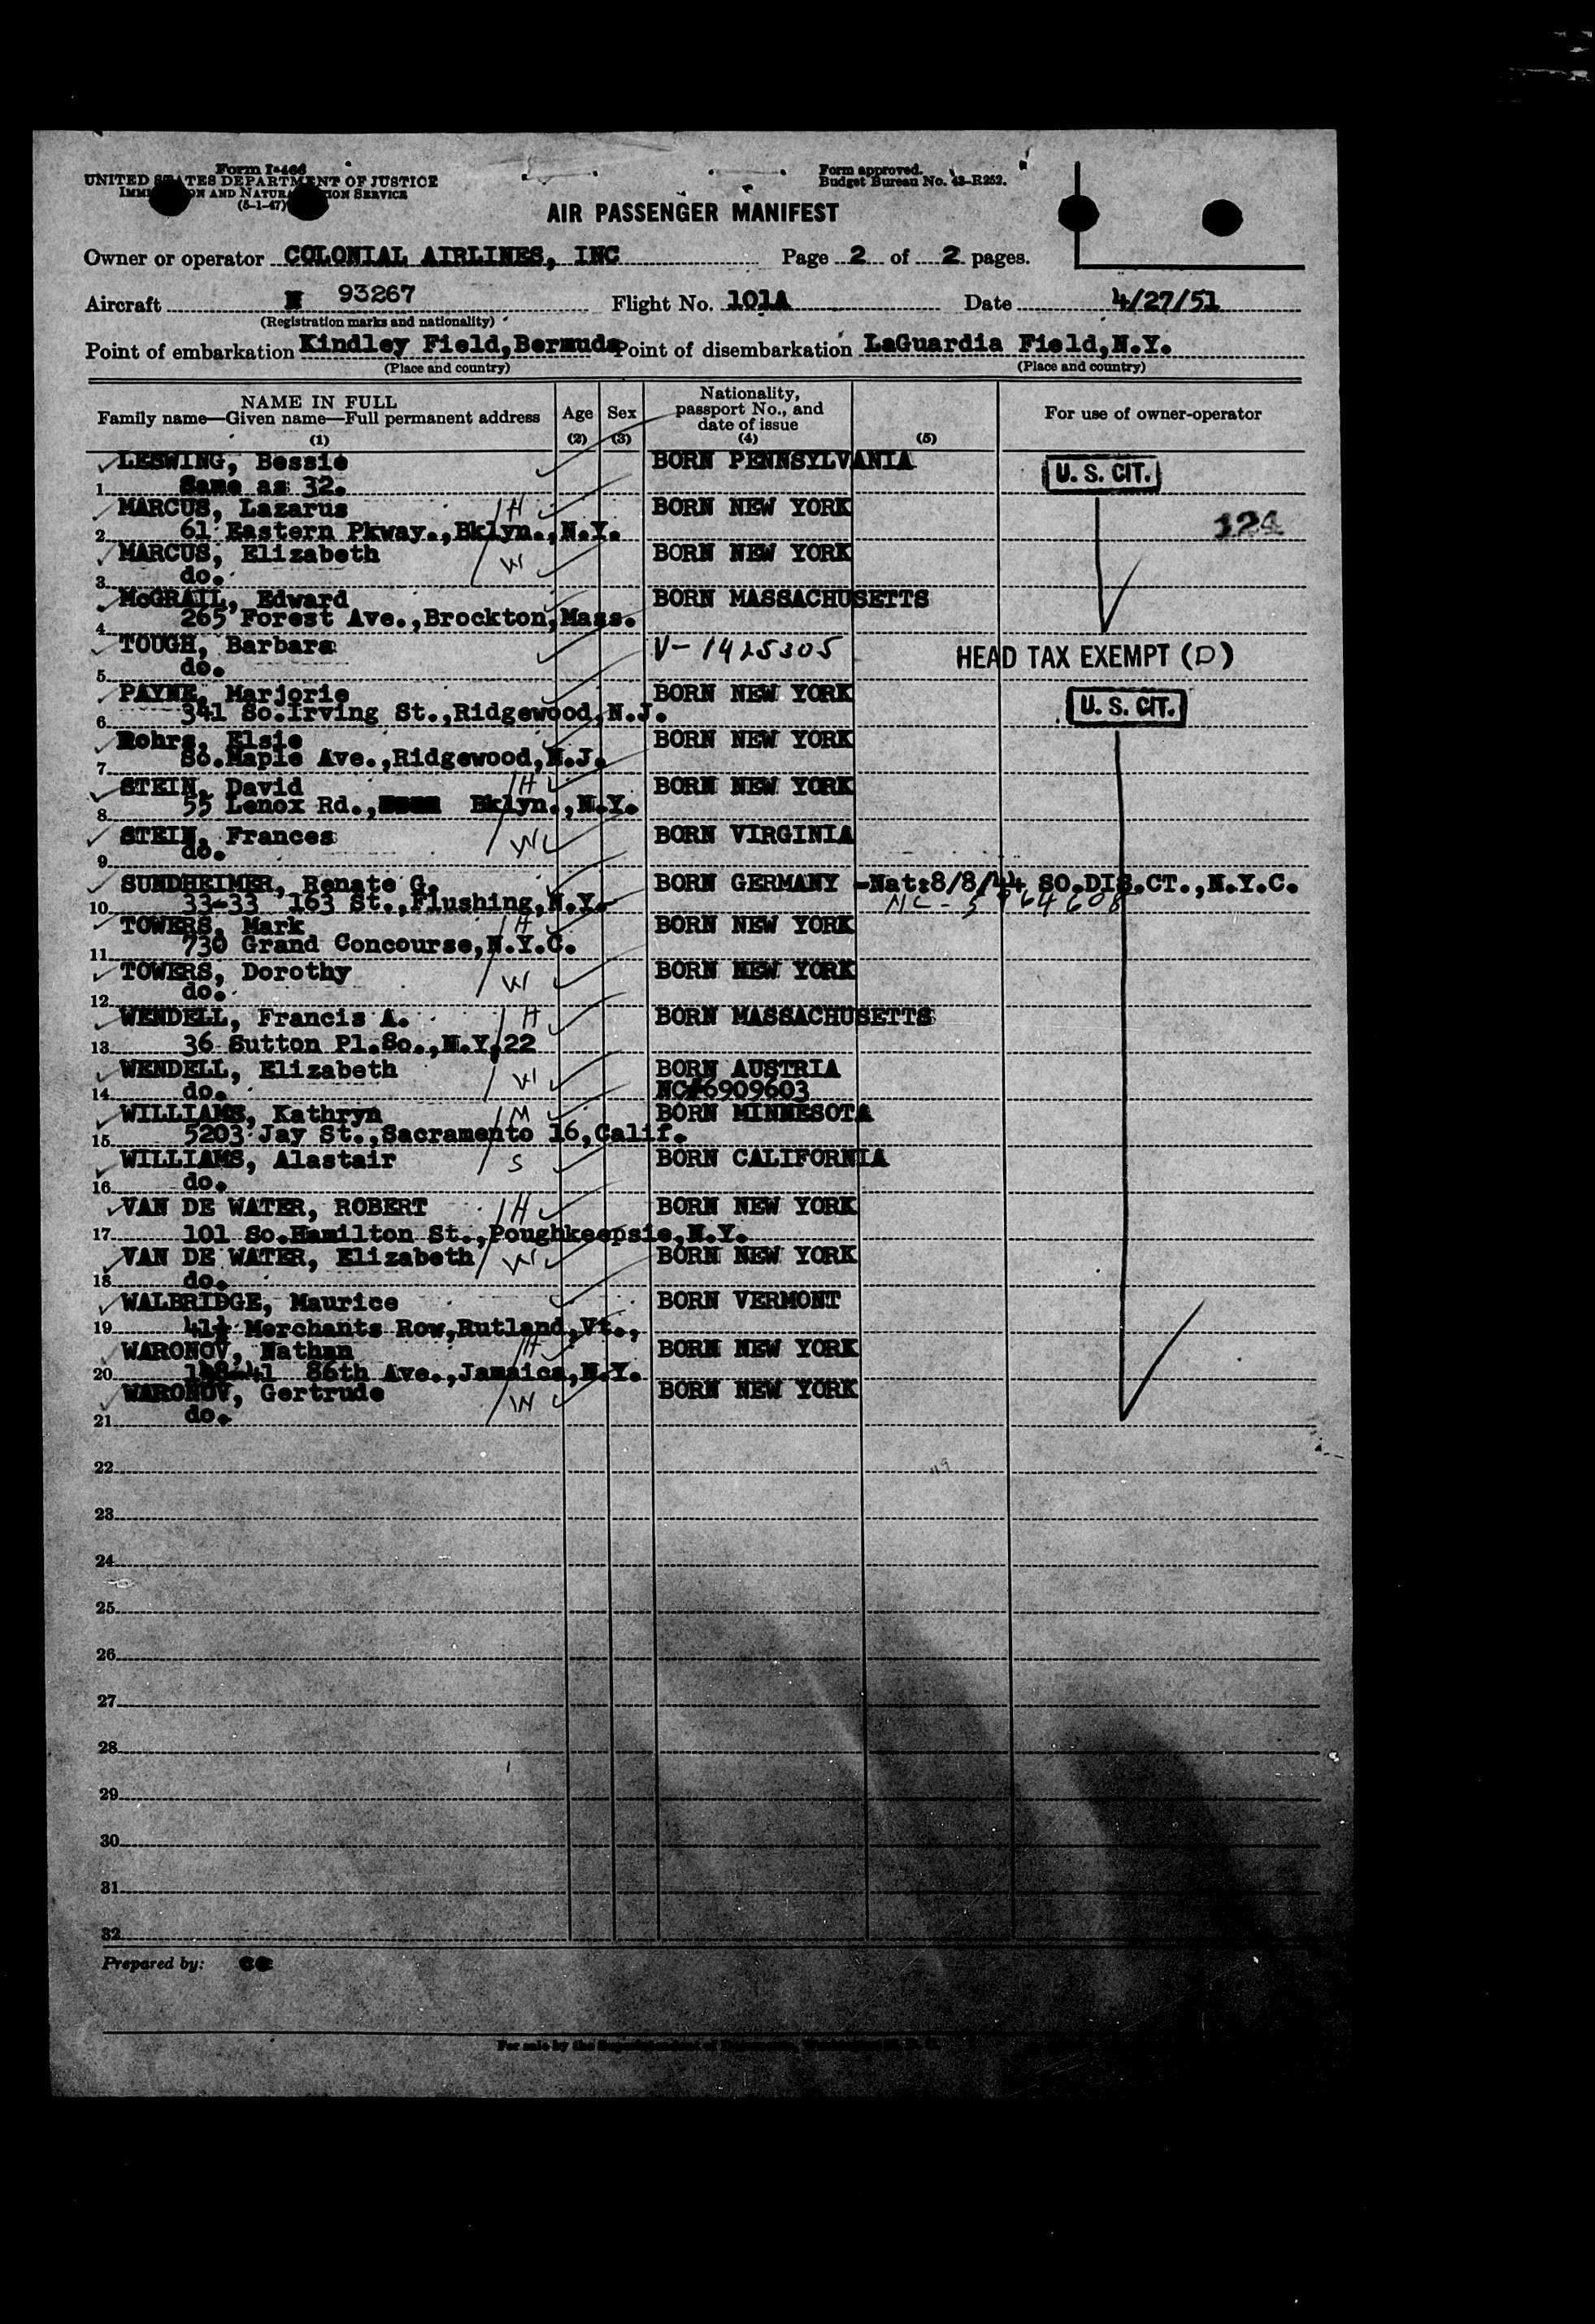 Form I-466
UNITED STATES DEPARTMENT OF JUSTICE
IMMIGRATION AND NATURALIZATION SERVICE
(5-1-47)
Form approved.
Budget Bureau No. 43-R252.
AIR PASSENGER MANIFEST
Owner or operator COLONIAL AIRLINES, INC Page 2 of 2 pages.
Aircraft N 93267 Flight No. 101A Date 4/27/51
(Registration marks and nationality)
Point of embarkation Kindley Field,Bermuda Point of disembarkation LaGuardia Field,N.Y.
(Place and country) (Place and country)
NAME IN FULL
Family name—Given name—Full permanent address
(1)
Age
(2)
Sex
(3)
Nationality,
passport No., and
date of issue
(4)
(5)
For use of owner-operator
LESWING, Bessie BORN PENNSYLVANIA U. S. CIT.
1 Same as 32.
MARCUS, Lazarus H BORN NEW YORK 124
2 61 Eastern Pkway.,Bklyn.,N.Y.
MARCUS, Elizabeth W BORN NEW YORK
3 do.
McGRAIL, Edward BORN MASSACHUSETTS
4 265 Forest Ave.,Brockton,Mass.
TOUGH, Barbara V-1425305 HEAD TAX EXEMPT (D)
5 do.
PAYNE, Marjorie BORN NEW YORK U. S. CIT.
6 341 So.Irving St.,Ridgewood,N.J.
Rohrs, Elsie BORN NEW YORK
7 So.Maple Ave.,Ridgewood,N.J.
STEIN, David H BORN NEW YORK
8 55 Lenox Rd., Bklyn.,N.Y.
STEIN, Frances W BORN VIRGINIA
9 do.
SUNDHEIMER, Renate G. BORN GERMANY -Nat:8/8/44 SO.DIS.CT.,N.Y.C.
10 33-33 163 St.,Flushing,N.Y. NC-5964608
TOWERS, Mark H BORN NEW YORK
11 730 Grand Concourse,N.Y.C.
TOWERS, Dorothy W BORN NEW YORK
12 do.
WENDELL, Francis A. H BORN MASSACHUSETTS
13 36 Sutton Pl.So.,N.Y.22
WENDELL, Elizabeth W BORN AUSTRIA
14 do. NC#6909603
WILLIAMS, Kathryn M BORN MINNESOTA
15 5203 Jay St.,Sacramento 16,Calif.
WILLIAMS, Alastair S BORN CALIFORNIA
16 do.
VAN DE WATER, ROBERT H BORN NEW YORK
17 101 So.Hamilton St.,Poughkeepsie,N.Y.
VAN DE WATER, Elizabeth W BORN NEW YORK
18 do.
WALBRIDGE, Maurice BORN VERMONT
19 41½ Merchants Row,Rutland,Vt.,
WARONOV, Nathan H BORN NEW YORK
20 86th Ave.,Jamaica,N.Y.
WARONOV, Gertrude W BORN NEW YORK
21 do.
22
23
24
25
26
27
28
29
30
31
32
Prepared by: cc
For sale by the Superintendent of Documents,